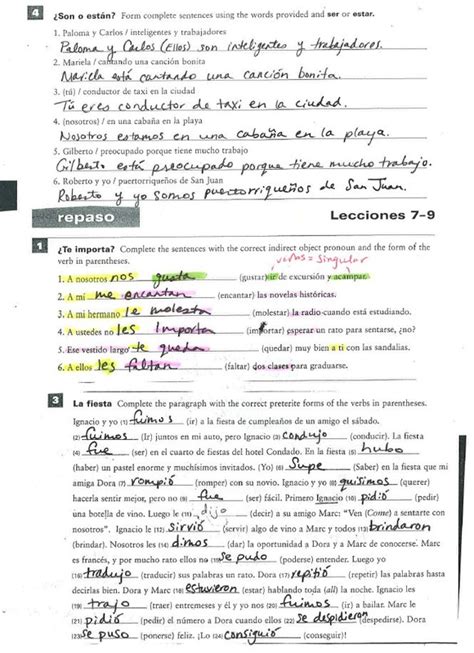 4 ¿Son o están? Form complete sentences using the words provided and ser or estar.
1. Paloma y Carlos / inteligentes y trabajadores
Paloma y Carlos (Ellos) son inteligentes y trabajadores.
2. Mariela / cantando una canción bonita
Mariela está cantando una canción bonita.
3. (tú) / conductor de taxi en la ciudad
Tú eres conductor de taxi en la ciudad.
4. (nosotros) / en una cabaña en la playa
Nosotros estamos en una cabaña en la playa.
5. Gilberto / preocupado porque tiene mucho trabajo
Gilberto está preocupado porque tiene mucho trabajo.
6. Roberto y yo / puertorriqueños de San Juan
Roberto y yo somos puertorriqueños de San Juan.
repaso Lecciones 7–9
1 ¿Te importa? Complete the sentences with the correct indirect object pronoun and the form of the
verbos = singular
verb in parentheses.
1. A nosotros nos gusta (gustar) ir de excursión y acampar.
2. A mí me encantan (encantar) las novelas históricas.
3. A mi hermano le molesta (molestar) la radio cuando está estudiando.
4. A ustedes no les importa (importar) esperar un rato para sentarse, ¿no?
5. Ese vestido largo te queda (quedar) muy bien a ti con las sandalias.
6. A ellos les faltan (faltar) dos clases para graduarse.
3 La fiesta Complete the paragraph with the correct preterite forms of the verbs in parentheses.
Ignacio y yo (1) fuimos (ir) a la fiesta de cumpleaños de un amigo el sábado.
(2) fuimos (Ir) juntos en mi auto, pero Ignacio (3) condujo (conducir). La fiesta
(4) fue (ser) en el cuarto de fiestas del hotel Condado. En la fiesta (5) hubo
(haber) un pastel enorme y muchísimos invitados. (Yo) (6) Supe (Saber) en la fiesta que mi
amiga Dora (7) rompió (romper) con su novio. Ignacio y yo (8) quisimos (querer)
hacerla sentir mejor, pero no (9) fue (ser) fácil. Primero Ignacio (10) pidió (pedir)
una botella de vino. Luego le (11) dijo (decir) a su amigo Marc: "Ven (Come) a sentarte con
nosotros". Ignacio le (12) sirvió (servir) algo de vino a Marc y todos (13) brindaron
(brindar). Nosotros les (14) dimos (dar) la oportunidad a Dora y a Marc de conocerse. Marc
es francés, y por mucho rato ellos no (15) se pudo (poderse) entender. Luego yo
(16) tradujo (traducir) sus palabras un rato. Dora (17) repitió (repetir) las palabras hasta
decirlas bien. Dora y Marc (18) estuvieron (estar) hablando toda (all) la noche. Ignacio les
(19) trajo (traer) entremeses y él y yo nos (20) fuimos (ir) a bailar. Marc le
(21) pidió (pedir) el número a Dora cuando ellos (22) se despidieron (despedirse). Dora
(23) se puso (ponerse) feliz. ¡Lo (24) consiguió (conseguir)!